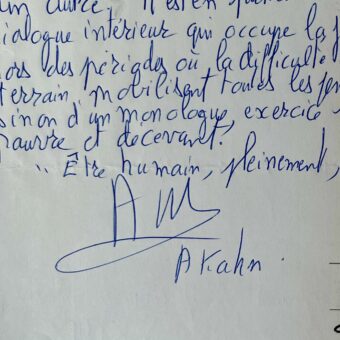 un autre. Il est en
dialogue intérieur qui occupe la
lors des périodes où la difficulté
terrain, mobilisent toutes les
sinon d'un monologue, exercice
pauvre et décevant.
" Être humain, pleinement,
A Kahn.